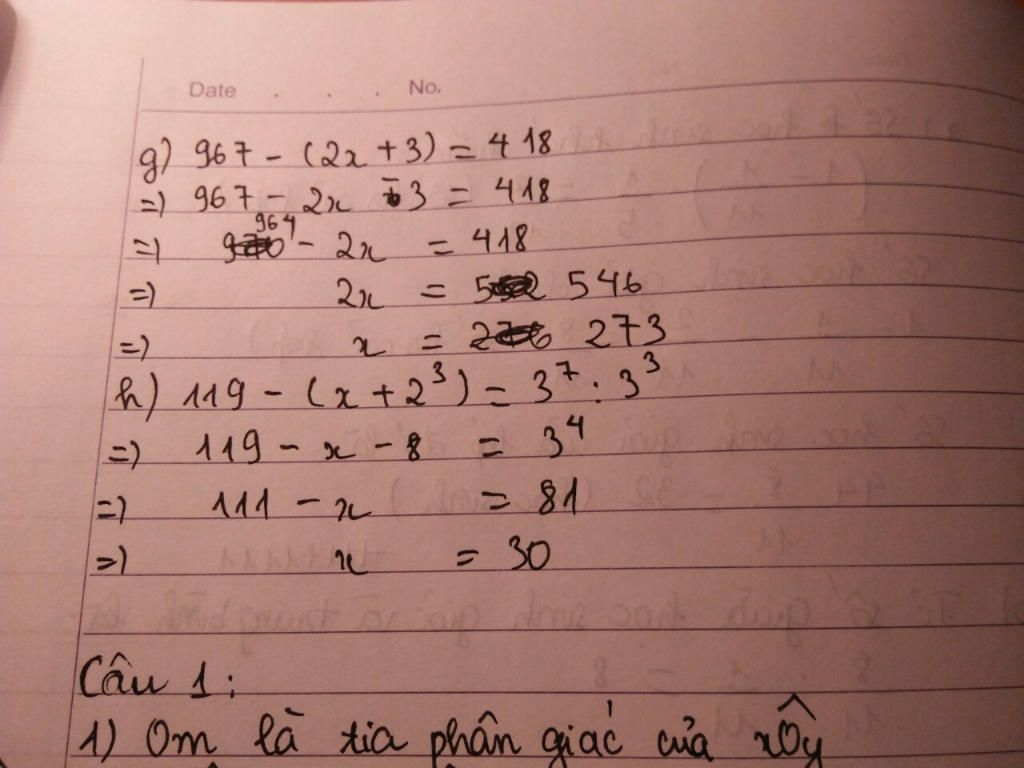 Date . . . No.
g) 967 - (2x + 3) = 418
=) 967 - 2x - 3 = 418
=) 964 - 2x = 418
=) 2x = 546
=) x = 273
h) 119 - (x + 2³) = 3⁷ : 3³
=) 119 - x - 8 = 3⁴
=) 111 - x = 81
=) x = 30
Câu 1:
1) Om là tia phân giác của xÔy